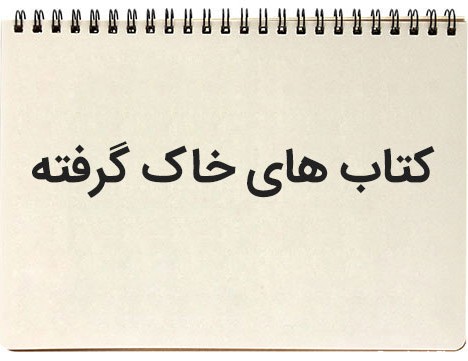 کتاب های خاک گرفته